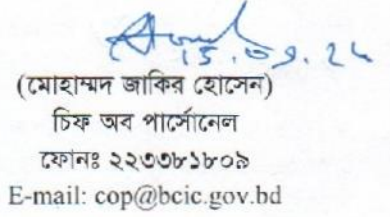 15.09.24
(মোহাম্মদ জাকির হোসেন)
চিফ অব পার্সোনেল
ফোনঃ ২২৩৩৮১৮০৯
E-mail: cop@bcic.gov.bd